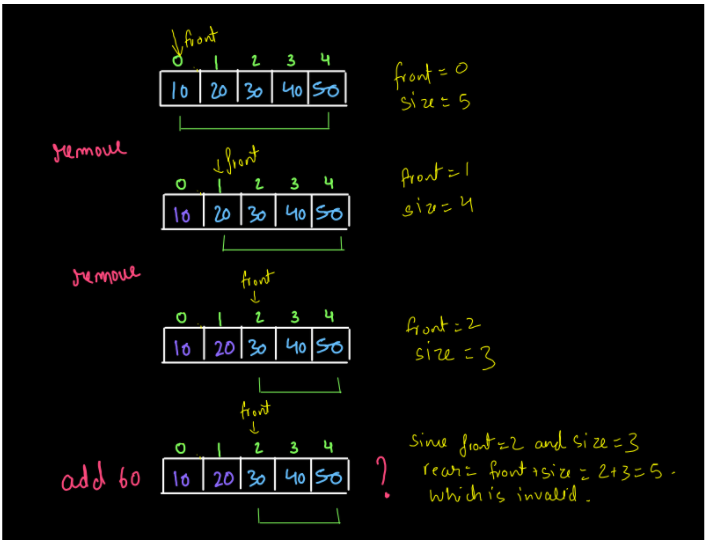 front
0 1 2 3 4
10 20 30 40 50
front = 0
size = 5
remove
front
0 1 2 3 4
10 20 30 40 50
front = 1
size = 4
remove
front
0 1 2 3 4
10 20 30 40 50
front = 2
size = 3
front
0 1 2 3 4
add 60 10 20 30 40 50 ?
since front = 2 and size = 3
rear = front + size = 2 + 3 = 5 .
which is invalid .